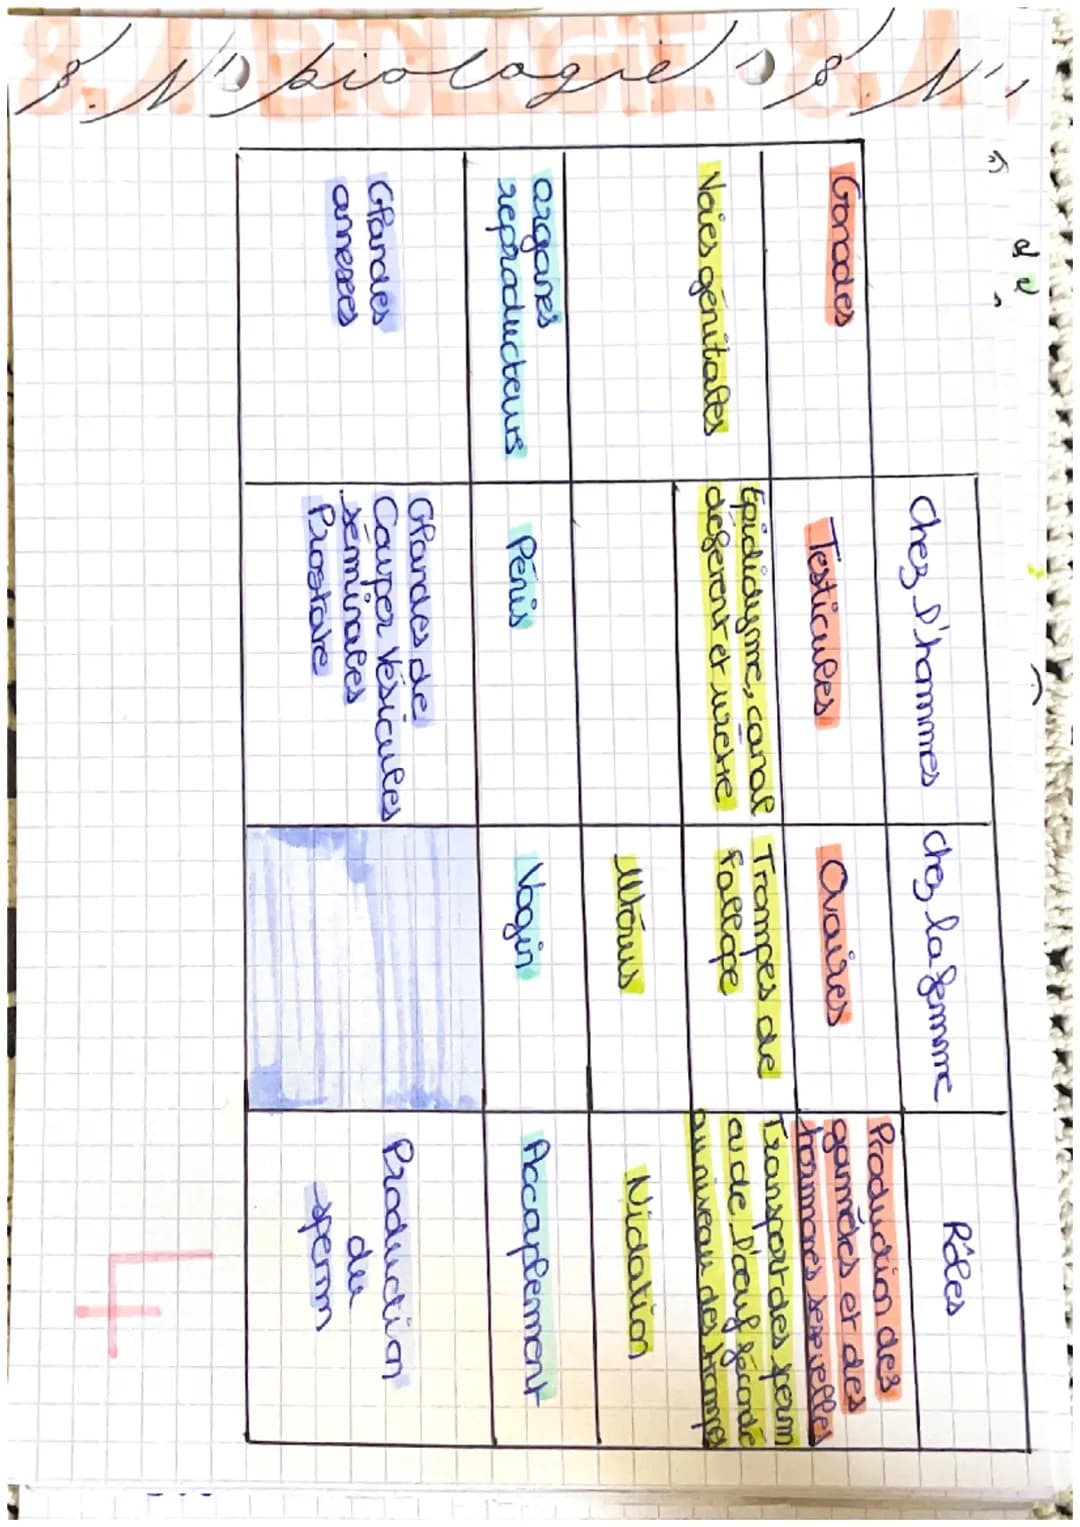 8. N° biologie 8. N°
BIOLOGIE
chez l'hommes
chez la femme
Rôles
Gonades
Testicules
Ovaires
Production des
gamètes et des
hormones sexuelles
Voies génitales
Epididyme, canal
déférent et urètre
Trompes de
fallope
Transport des sperm
ou de l'oeuf fécondé
au niveau des trompes
Utérus
Nidation
organes
reproducteurs
Pénis
Vagin
Accouplement
Glandes
annexes
Glandes de
Couper Vésicules
séminales
Prostate
Production
du
sperm